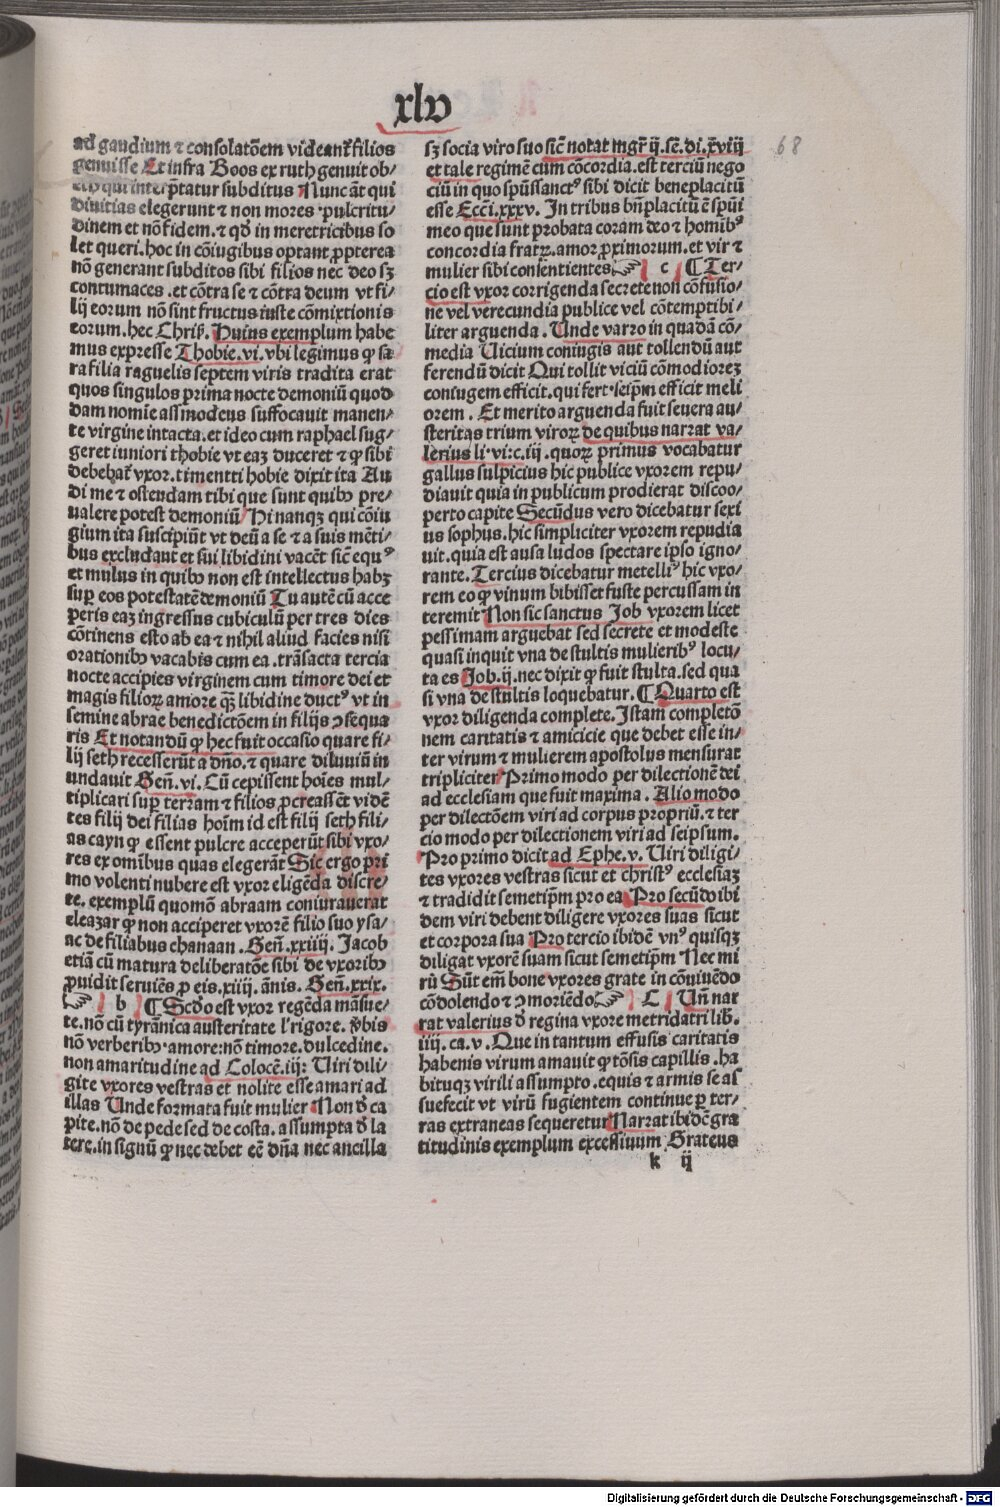 xlv
68
ad gaudium ⁊ consolatōem videant᷑ filios
genuisse Et infra Boos ex ruth genuit ob-
qui interp̄tatur subditus Nunc āt qui
diuitias elegerunt ⁊ non mores pulcritu/
dinem et nō fidem. ⁊ qd̄ in meretricibus so
let queri. hoc in cōiugibus optant ꝓpterea
nō generant subditos sibi filios nec deo sꝫ
contumaces .et cōtra se ⁊ cōtra deum vt fi/
lij eorum nō sint fructus iuste cōmixtionis
eorum. hec Chris̄. Huius exemplum habe
mus expresse Thobie. vi. vbi legimus ꝙ sa
ra filia raguelis septem viris tradita erat
quos singulos prima nocte demoniū quod
dam nomīe assmodeus suffocauit manen/
te virgine intacta. et ideo cum raphael sug/
geret iuniori thobie vt eaꝫ duceret ⁊ ꝙ sibi
debebat᷑ vxor. timenti thobie dixit ita Au
di me ⁊ ostendam tibi que sunt quibꝰ pre/
ualere potest demoniū Hi nanqꝫ qui cōiu
gium ita suscipiūt vt deū a se ⁊ a suis mēti/
bus excludant et sui libidini vacēt sic̄ equꝰ
et mulus in quibꝰ non est intellectus habꝫ
sup̱ eos potestatē demoniū Tu autē cū acce
peris eaꝫ ingressus cubiculū per tres dies
cōtinens esto ab ea ⁊ nihil aliud facies nisi
orationibꝰ vacabis cum ea . trāsacta tercia
nocte accipies virginem cum timore dei et
magis filioꝝ amore q̄ꝫ libidine ductꝰ vt in
semine abrae benedictōem in filijs ꝯsequa
ris Et notandū ꝙ hec fuit occasio quare fi/
lij seth recesserūt a dn̄o. ⁊ quare diluuiū in
undauit Gen̄. vi. Cū cepissent hoīes mul/
tiplicari sup̱ terram ⁊ filios ꝓcreassēt vidē
tes filij dei filias hoīm id est filij seth fili/
as cayn ꝙ essent pulcre acceperūt sibi vxo/
res ex omībus quas elegerāt Sic ergo pri
mo volenti nubere est vxor eligēda discre/
te. exemplū quomō abraam coniurauerat
eleazar ꝙ non acciperet vxorē filio suo ysa/
ac de filiabus chanaan . Gen̄. xxiiij. Jacob
etiā cū matura deliberatōe sibi de vxoribꝰ
ꝓuidit seruiēs ꝑ eis. xiiij. ānis. Gen̄. xxix.
☞ b ¶ Scd̄o est vxor regēda māsue/
te. nō cū tyrānica austeritate l' rigore. v̄bis
nō verberibꝰ. amore: nō timore. dulcedine.
non amaritudine ad Colocē. iij: Viri dili/
gite vxores vestras et nolite esse amari ad
illas Unde formata fuit mulier Non d̄ ca
pite. nō de pede sed de costa. assumpta d̄ la
tere. in signū ꝙ nec debet eē dn̄a nec ancilla
sꝫ socia viro suo sic̄ notat mgr̄ ij. se. di. xviij
et tale regimē cum cōcordia. est terciū nego
ciū in quo spūssanctꝰ sibi dicit beneplacitū
esse Ecci. xxxv. In tribus bn̄placitū ē spūi
meo que sunt probata coram deo ⁊ homībꝰ
concordia fratꝝ. amor ꝓximorum. et vir ⁊
mulier sibi consentientes ☞ c ¶ Ter/
cio est vxor corrigenda secrete non cōfusio/
ne vel verecundia publice vel cōtemptibi/
liter arguenda . Unde varro in quadā cō/
media Uicium coniugis aut tollendū aut
ferendū dicit Qui tollit viciū cōmodioreꝫ
coniugem efficit. qui fert seip̄m efficit meli
orem . Et merito arguenda fuit seuera au/
steritas trium viroꝝ de quibus narrat va/
lerius li. vi: c. iij . quoꝝ primus vocabatur
gallus sulpicius hic publice vxorem repu/
diauit quia in publicum prodierat discoo/
perto capite Secūdus vero dicebatur sexi
us sophus. hic simpliciter vxorem repudia
uit. quia est ausa ludos spectare ipso igno/
rante. Tercius dicebatur metellꝰ hic vxo/
rem eo ꝙ vinum bibisset fuste percussam in
teremit Non sic sanctus Job vxorem licet
pessimam arguebat sed secrete et modeste
quasi inquit vna de stultis mulieribꝰ locu/
ta es Job. ij. nec dixit ꝙ fuit stulta. sed qua
si vna de stultis loquebatur. ¶ Quarto est
vxor diligenda complete. Istam completō
nem caritatis ⁊ amicicie que debet esse in/
ter virum ⁊ mulierem apostolus mensurat
tripliciter Primo modo per dilectionē dei
ad ecclesiam que fuit maxima . Alio modo
per dilectōem viri ad corpus propriū. ⁊ ter
cio modo per dilectionem viri ad seipsum.
Pro primo dicit ad Ephe. v. Uiri diligi/
tes vxores vestras sicut et christꝰ ecclesiaꝫ
⁊ tradidit semetip̄m pro ea Pro secūdo ibi
dem viri debent diligere vxores suas sicut
et corpora sua Pro tercio ibidē vnꝰ quisqꝫ
diligat vxorē suam sicut semetip̄m Nec mi
rū Sūt em̄ bone vxores grate in cōuiuēdo
cōdolendo ⁊ ꝯmoriēdo ☞ C Un̄ nar
rat valerius d̄ regina vxore metridatri lib̄.
iiij. ca. v . Que in tantum effusis caritatis
habenis virum amauit ꝙ tōsis capillis . ha
bituqꝫ virili assumpto . equis ⁊ armis se as
suefecit vt virū fugientem continue ꝑ ter/
ras extraneas sequeretur Narrat ibidē gra
titudinis exemplum excessiuum Grateus
k ij
Digitalisierung gefördert durch die Deutsche Forschungsgemeinschaft - DFG